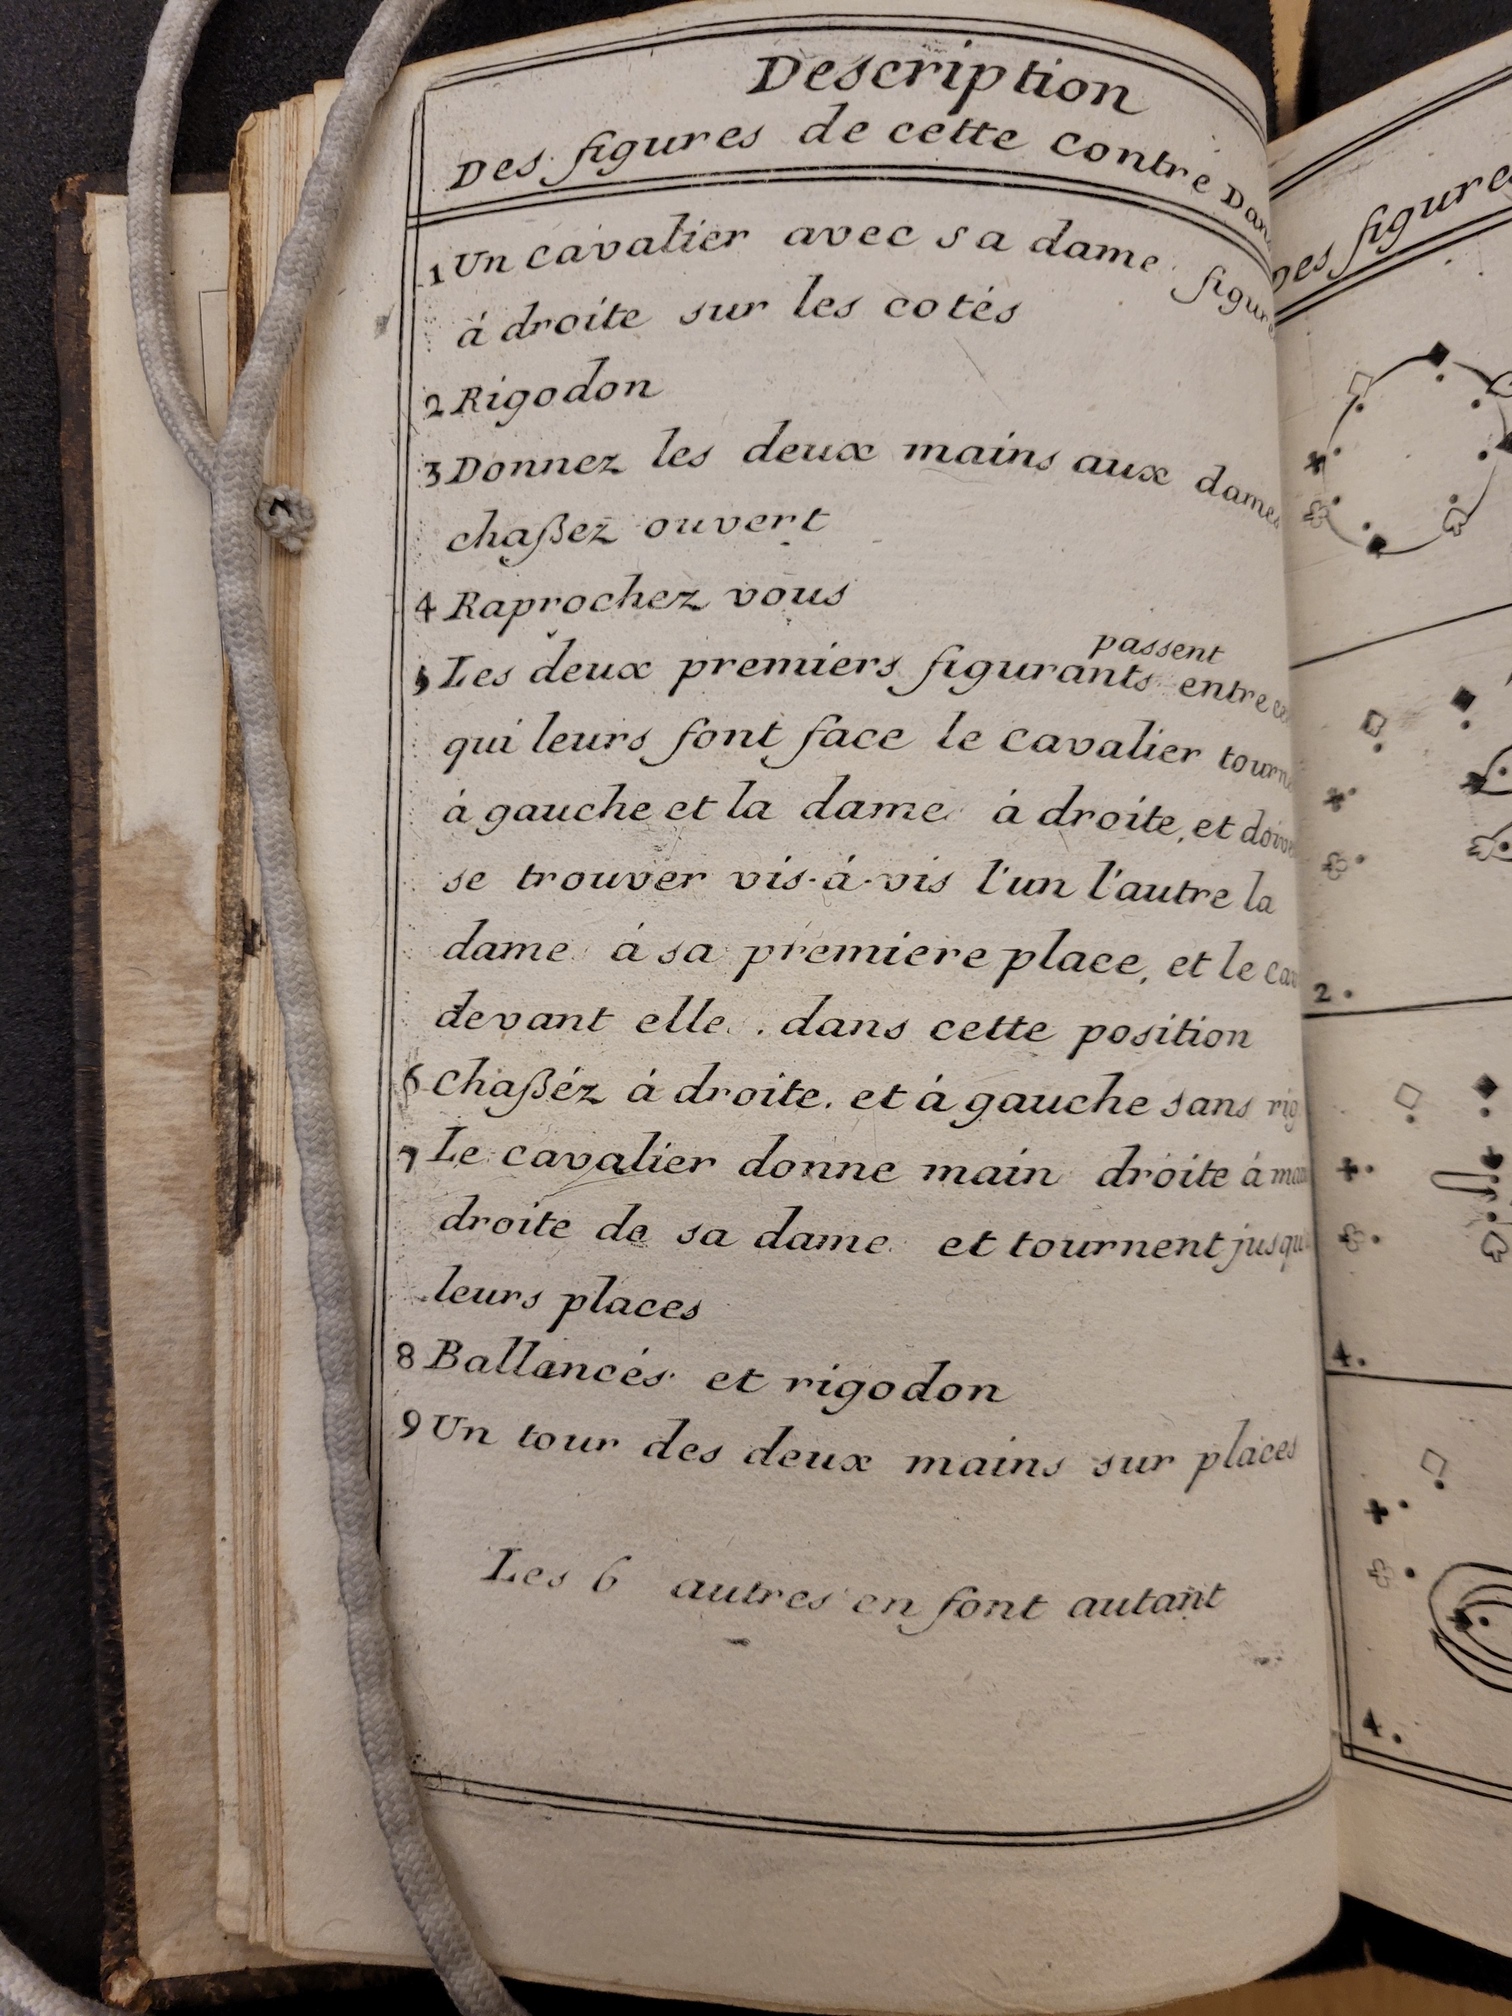 Description
Des figures de cette Contre Dan
1 Un cavalier avec sa dame figur
à droite sur les cotés
2 Rigodon
3 Donnez les deux mains aux dames
chaßez ouvert
4 Raprochez vous
passent
5 Les deux premiers figurants entre ce
qui leurs font face le cavalier tourn
à gauche et la dame à droite, et doive
se trouver vis-à-vis l'un l'autre la
dame à sa premiere place, et le cav
devant elle. dans cette position
6 Chaßéz à droite. et à gauche sans rig
7 Le cavalier donne main droite à ma
droite de sa dame et tournent jusqu
leurs places
8 Ballancés et rigodon
9 Un tour des deux mains sur places
Les 6 autres en font autant
Des figure
2.
4.
4.